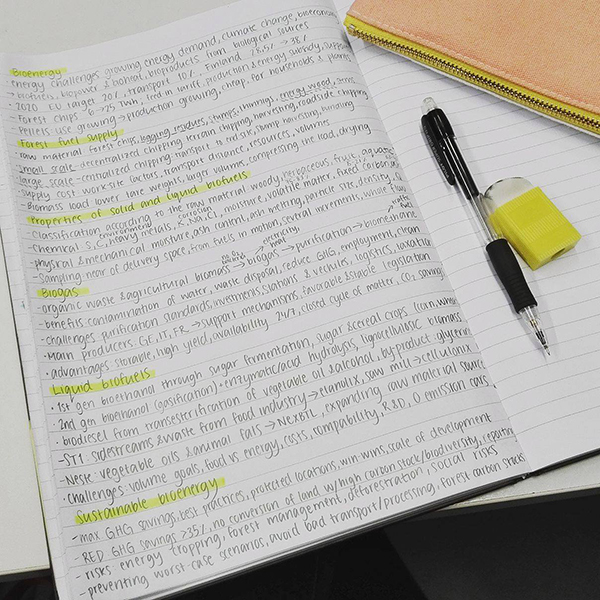 Bioenergy
energy challenges growing energy demand, climate change, bioeconomy
- biofuels, biopower & bioheat, bioproducts from biological sources
- 2020 EU target 20%, transport 10%, Finland 28.5% → 38%
- Forest chips feed in tariff, production & energy subsidy, support
- Pellets use growing → production growing, cheap, for households & plants
Forest fuel supply
- raw material forest chips, logging residues, stumps, thinnings, energy wood
- small scale decentralized chipping, terrain chipping, harvesting, roadside chipping
- large scale centralized chipping, transport to end site, stump harvesting, bundling
- supply cost work-site factors, transport distance, resources, volumes
- Biomass load lower, late weights, bigger volumes, compressing the load, drying
Properties of solid and liquid biofuels
- Classification according to the raw material woody, herbaceous, fruit, aquatic
- Chemical S, C, heavy metals, K, NaKCl, moisture, volatile matter, fixed carbon
environment corrosion
- physical & mechanical moisture, ash content, ash melting, particle size, density
- Sampling near of delivery space, from fuels in motion, several increments, whole
Biogas
- organic waste & agricultural biomass → biogas → purification → biomethane
- benefits contamination of water, waste disposal, reduce GHG, employment, clean
- challenges purification standards, investments, stations & vehicles, logistics, taxation
- Main producers: GE, IT, FR → support mechanisms, favorable & stable legislation
- advantages storable, high yield, availability 24/7, closed cycle of matter, CO2 savings
Liquid biofuels
- 1st gen bioethanol through sugar fermentation, sugar & cereal crops (corn,
- 2nd gen bioethanol (gasification) + enzymatic/acid hydrolysis, lignocellulosic biomass
- biodiesel from transesterification of vegetable oil & alcohol, by-product glycerine
- ST1 sidestreams & waste from food industry → etanolix, saw mill → cellulonix
- Neste vegetable oils & animal fats → NEXBTL, expanding raw material source
- challenges volume goals, food vs energy, costs, compatibility, R&D, 0 emission cars,
Sustainable bioenergy
- max GHG savings, best practices, protected locations, win-wins, scale of development
- RED GHG savings >35%, no conversion of land w/ high carbon stock/biodiversity, reporting
- risks energy cropping, forest management, deforestation, social risks
- preventing worst-case scenarios, avoid bad transport/processing, forest carbon stocks